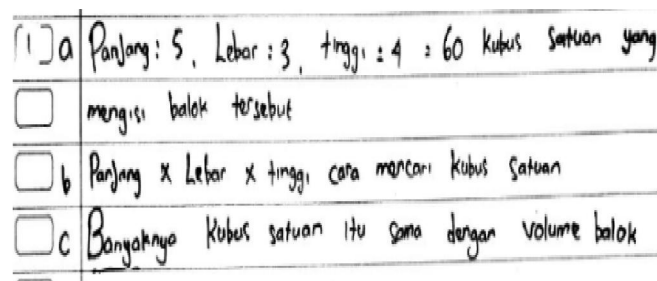 1 a Panjang : 5, Lebar : 3, tinggi : 4 = 60 kubus satuan yang
mengisi balok tersebut
b Panjang x Lebar x tinggi cara mencari kubus satuan
c Banyaknya kubus satuan itu sama dengan volume balok